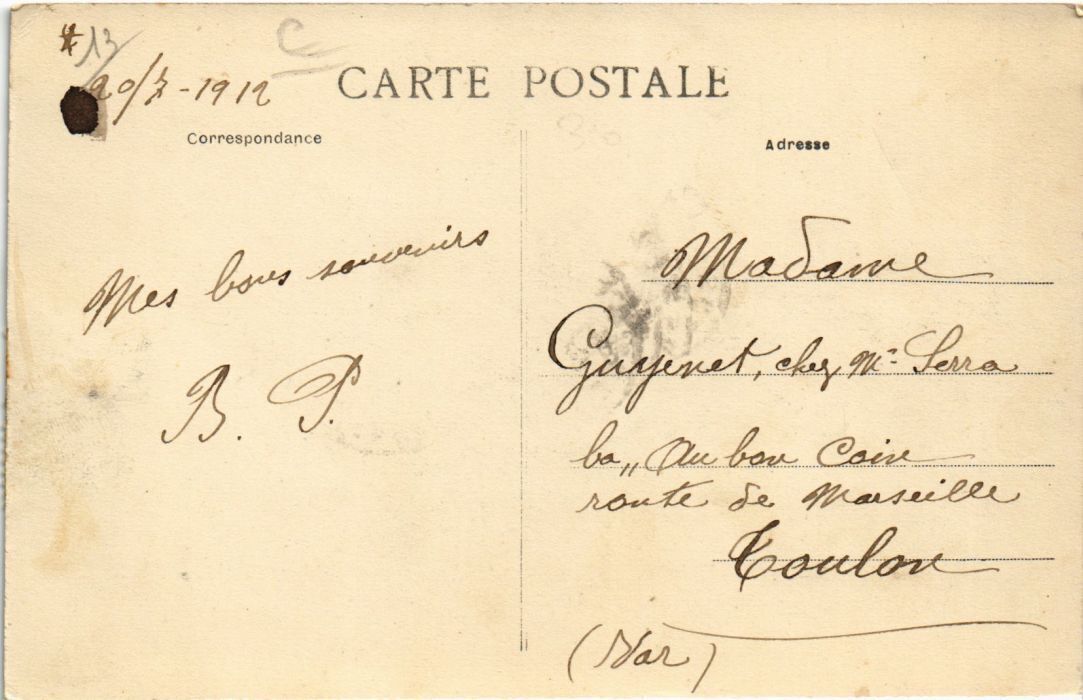 13
20/ -1912
CARTE POSTALE
Correspondance
Adresse
Mes bons souvenirs
B. P.
Madame
Guyenet, chez Mr Serra
"Au bon Coin
route de Marseille
Toulon
(Var)